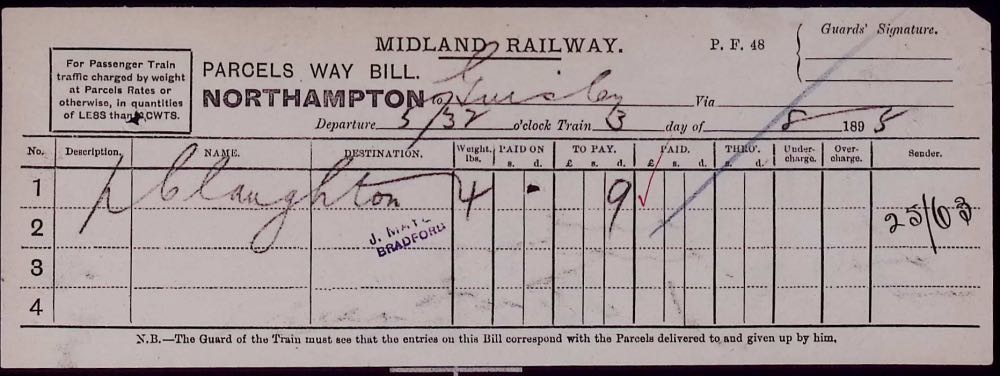 MIDLAND RAILWAY.
P. F. 48
Guards' Signature.
For Passenger Train
traffic charged by weight
at Parcels Rates or
otherwise, in quantities
of LESS than CWTS.
PARCELS WAY BILL.
NORTHAMPTON to Guisley Via
Departure 5/32 o'clock Train 3 day of 8 1895
No. Description. NAME. DESTINATION. Weight. lbs. PAID ON s. d. TO PAY. £ s. d. PAID. £ s. d. THRO'. s. d. Under-charge. Over-charge. Sender.
1 p Claughton 4 - 9
2 25/63
J. 
BRADFORD
3
4
N.B.—The Guard of the Train must see that the entries on this Bill correspond with the Parcels delivered to and given up by him,